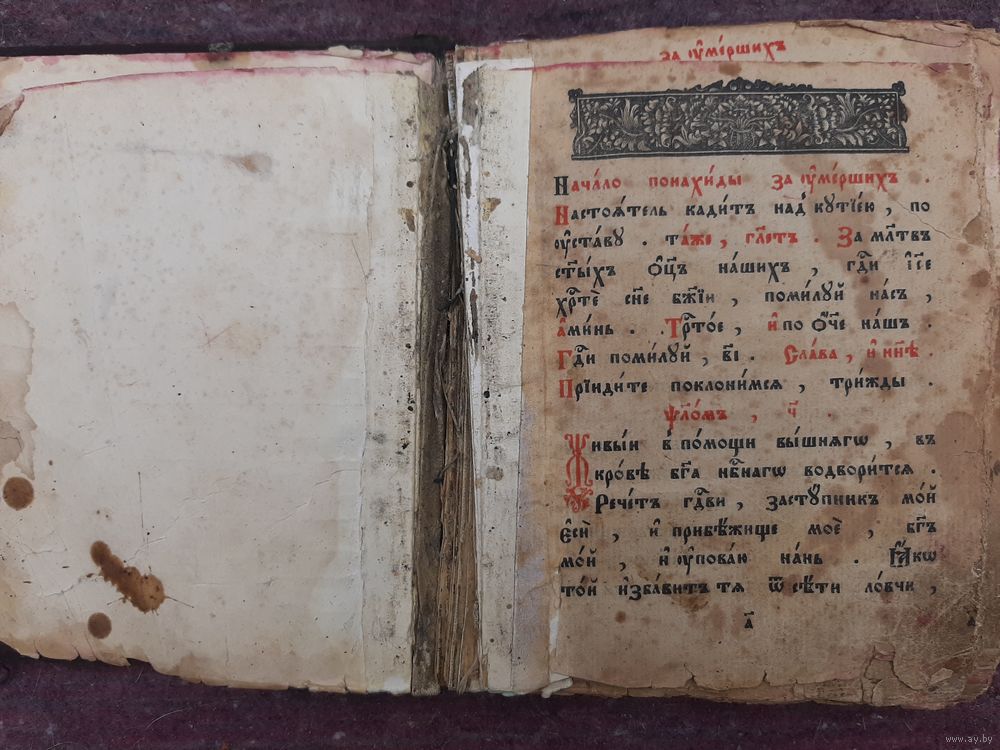 за ᲂу҆ме́ршихъ
Нача́ло понахи́ды за ᲂу҆ме́ршихъ .
Настоѧ́тель кади́тъ над̾ кᲂутїе́ю , по
ᲂу҆ста́вꙋ . та́же , гл҃етъ . За мл҃твъ
ст҃ы́хъ ѻ҆ц҃ъ на́шихъ , гдⷭ҇и і҆с҃е
хрⷭ҇тѐ сн҃е бж҃їи , поми́лꙋй на́съ ,
а҆ми́нь . Трⷭ҇то́е , и҆ по ѻ҆́ч҃е на́шъ .
Гдⷭ҇и поми́лꙋй , в҃і . Сла́ва , и҆ нн҃ѣ .
Прїиди́те поклони́мсѧ , три́жды .
ѱл҃о́мъ , ч҃ .
Живы́и в̾ по́мощи вы́шнѧгѡ , въ
кро́вѣ бг҃а нбⷭ҇нагѡ водвори́тсѧ .
Рече́тъ гдⷭ҇ви , застꙋ́пникъ мо́й
є҆сѝ , и҆ прибѣ́жище моѐ , бг҃ъ
мо́й , и҆ ᲂу҆пова́ю на́нь . Ꙗ҆́кѡ
то́й и҆зба́витъ тѧ ѿ сѣ́ти ло́вчи ,
а҃
www.ay.by